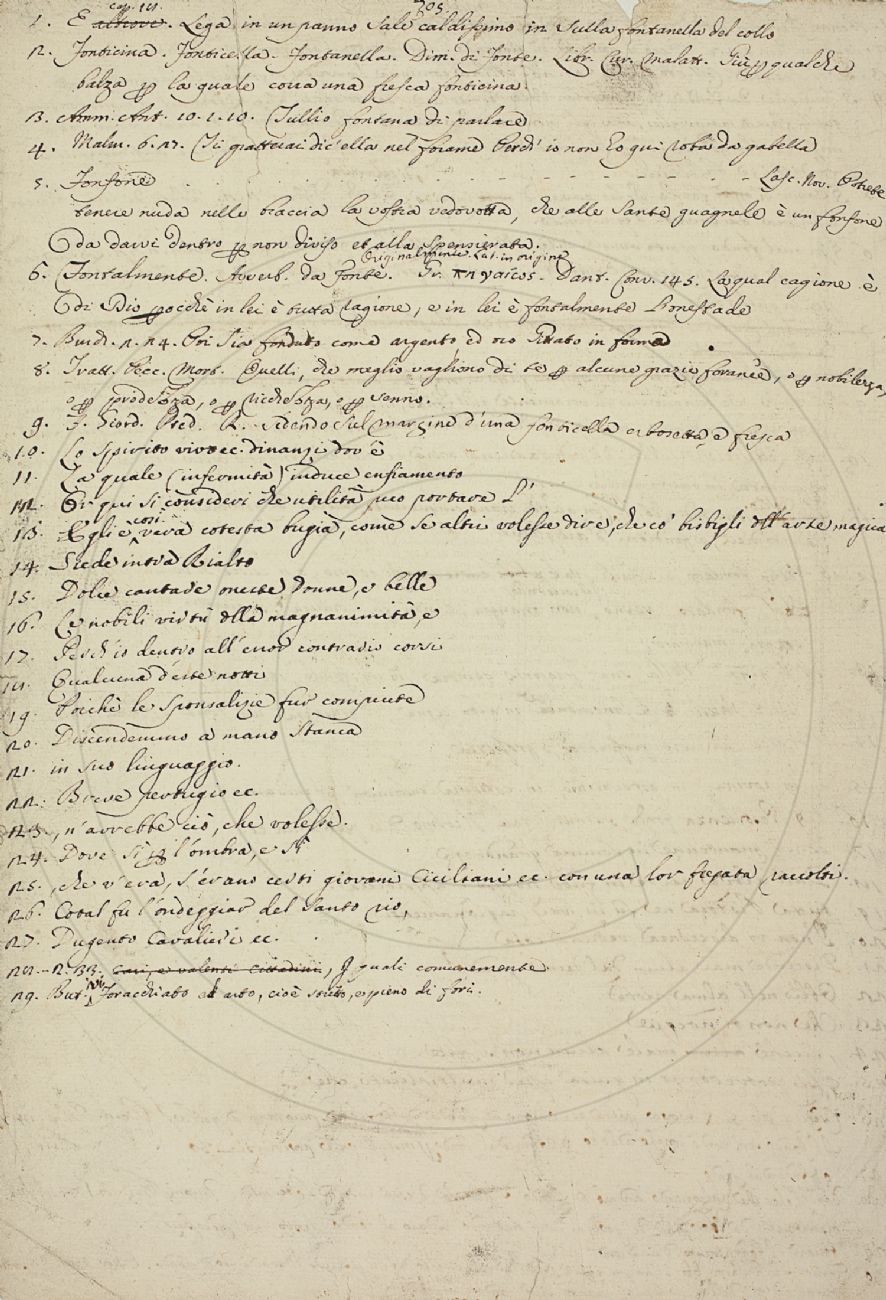 cap. 101. 705.
1. E altrove. Lega in un panno Sale caldissimo in Sulla fontanella del collo
2. Fonticina. Fonticella. Fontanella. Dim. di Fonte. Libr. Cur. Malatt. Fu ꝑ qualche
balza ꝑ la quale corra una fresca fonticina.
3. Amm. Ant. 10. 1. 10. Tullio fontana di parlare
4. Malm. 6. 27. Chi gratterai dic'ella nel forame Perch' io non ho qui roba da gabella
5. Fonfone - - - Lasc. Nov. Potrebe
tenere nuda nelle braccia la vostra vedovotta, che alle Sante guagnele è un fonfone
da darvi dentro ꝑ non diviso et alla Spensierata.
Originalmente. Lat. in origine
6. Fontalmente. Avverb. da Fonte. Gr. πηγαίως. Dant. Conv. 145. La qual cagione è
di Dio ꝑocchè in lei è tutta ragione, e in lei è fontalmente l'onestade
7. Burch. 2. 24. Poi Sia fonduto come argento ed oro Gittato in forma
8. Tratt. Pecc. Mort. Quelli, che meglio vagliono di te ꝑ alcune grazie foranee, o ꝑ nobilezza,
o ꝑ prodezza, o ꝑ ricchezza, o ꝑ senno.
9. F. Giord. Pred. R. Sidendo Sul margine d'una fonticella erbosetta, e fresca
10. Lo Spirito vivo ec. dinanzi dov'è
11. La quale (infermità) induce enfiamento
12. Or qui si consideri che utilità puo portare l'
così
13. Egli è vera cotesta bugia, come Se altri volesse dire, che co' bisbigli dell'arte magica
14. Siede intra Rialto
15. Dolce cantare oneste donne, e belle
16. Le nobili virtù della magnanimità, e
17. Perch'io dentro all'error contrario corsi
18. Qualcuna d'este notti
19. Poichè le Sponsalizie fur compiute
20. Discendemmo a mano Stanca
21. in Suo linguaggio.
22. Breve pertugio ec.
23. , n'avrebbe ciò, che volesse.
24. Dove Si ꝑ l'ombra, e Si
25. , che v'era, S'erano certi giovani Ciciliani ec. con una lor fregata raccolti.
26. Cotal fu l'ondeggiar del Santo rio,
27. Dugento Cavalieri ec.
28. 2. 33. Cari, e valenti Cittadini, I quali comunemente
29. But. ivi Foracchiato ed arto, cioè stretto, e pieno di fori.